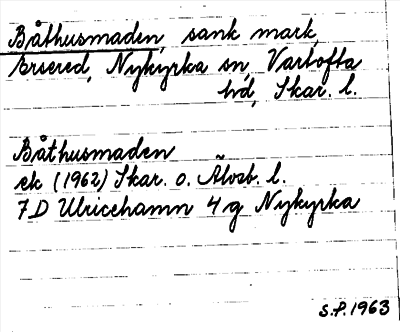 Båthusmaden, sank mark,
Brisered, Nykyrka sn, Vartofta
hd, Skar. l.
Båthusmaden
ek (1962) Skar. o. Älvsb. l.
7D Ulricehamn 4g Nykyrka
S.P. 1963